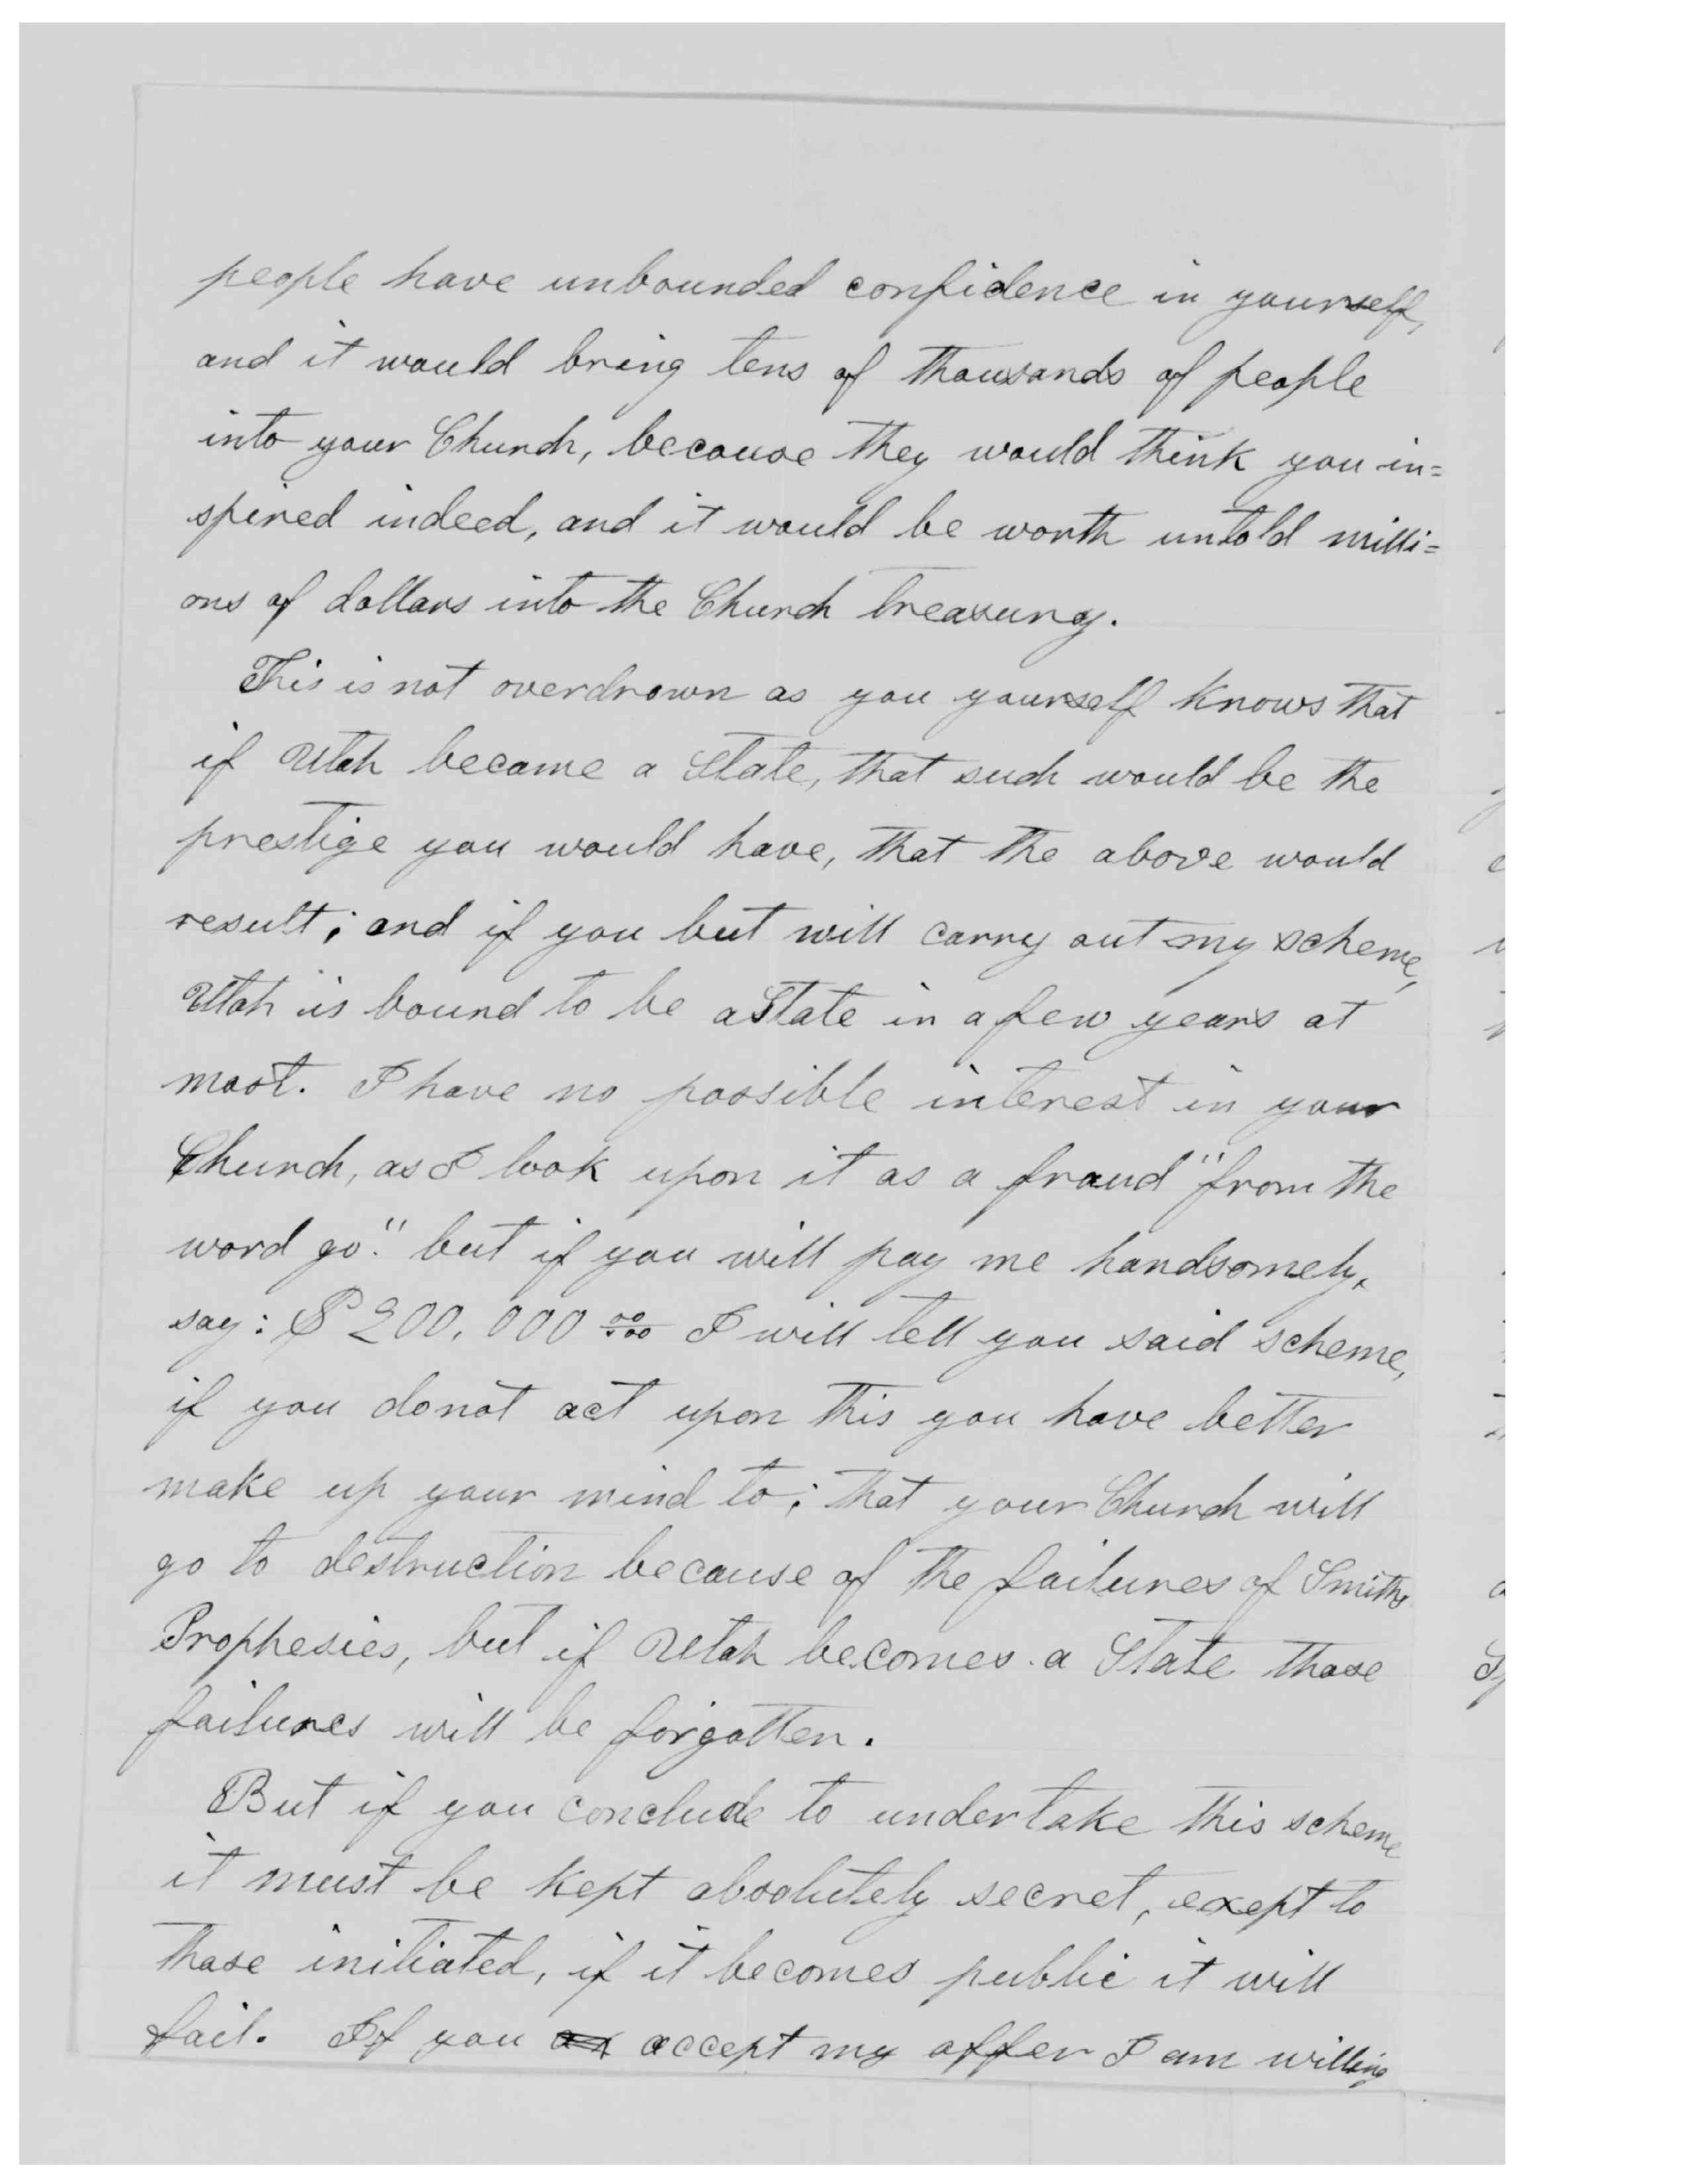 people have unbounded confidence in yourself,
and it would bring tens of thousands of people
into your Church, because they would think you in=
spired indeed, and it would be worth untold milli=
ons of dollars into the Church treasury.
This is not overdrawn as you yourself knows that
if Utah became a State, that such would be the
prestige you would have, that the above would
result; and if you but will carry out my scheme,
Utah is bound to be a State in a few years at
most. I have no possible interest in your
Church, as I look upon it as a fraud "from the
word go." but if you will pay me handsomely,
say: $200,000 00/100 I will tell you said scheme,
if you do not act upon this you have better
make up your mind to; that your Church will
go to destruction because of the failures of Smiths
Prophesies, but if Utah becomes a State those
failures will be forgotten.
But if you conclude to undertake this scheme
it must be kept absolutely secret, exept to
those initiated, if it becomes public it will
fail. If you accept my offer I am willing